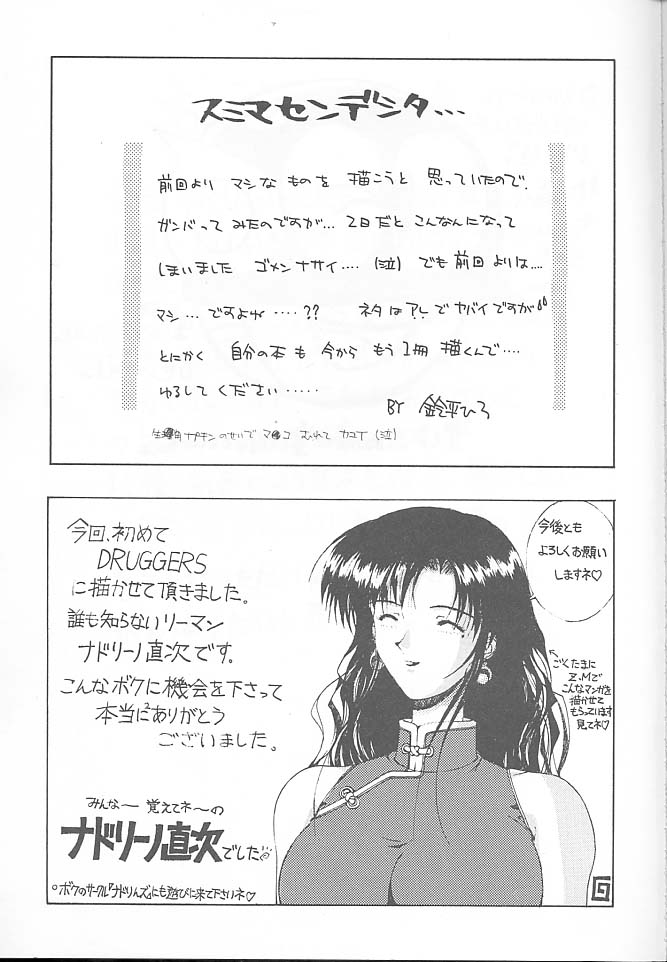 スミマセンデシタ...
前回より マシな ものを 描こうと 思っていたので、
ガンバって みたのですが... 2日だと こんなんになって
しまいました ゴメンナサイ.... (泣) でも 前回 よりは....
マシ...ですよね.....?? ネタは アレで ヤバイですが
とにかく 自分の本も 今から もう1冊 描くんで....
ゆるして ください.....
BY 鈴平ひろ
ナプキン のせいで マ●コ むれて カユイ (泣)
今回、初めて
DRUGGERS
に描かせて頂きました。
誰も知らないリーマン
ナドリーノ直次です。
こんなボクに機会を下さって
本当にありがとう
ございました。
みんなー 覚えてネ〜の
ナドリーノ直次でした
○ボクのサークル『ナドりんズ』にも遊びに来て下さいネ♡
今後とも
よろしくお願い
しますネ♡
←ごくたまに
Z.Mで
こんなマンガを
描かせて
もらっています
見てネ♡